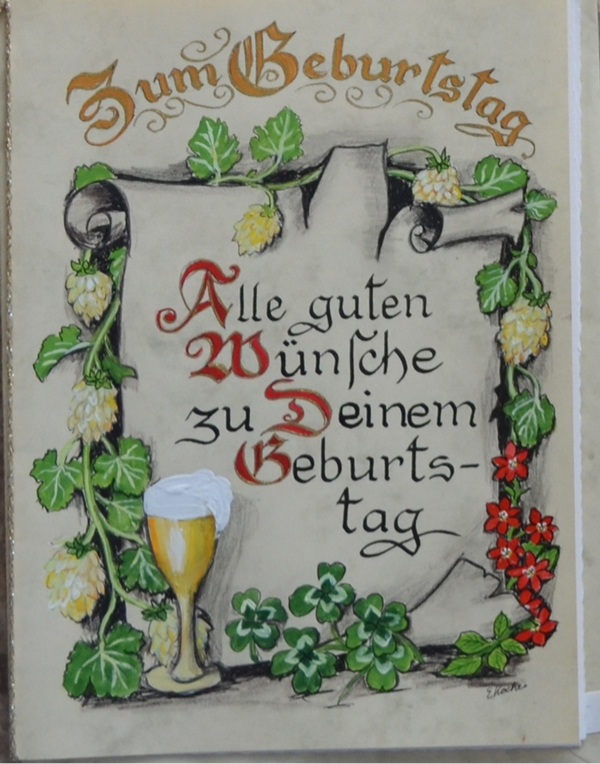 Zum Geburtstag
Alle guten
Wünſche
zu Deinem
Geburts-
tag